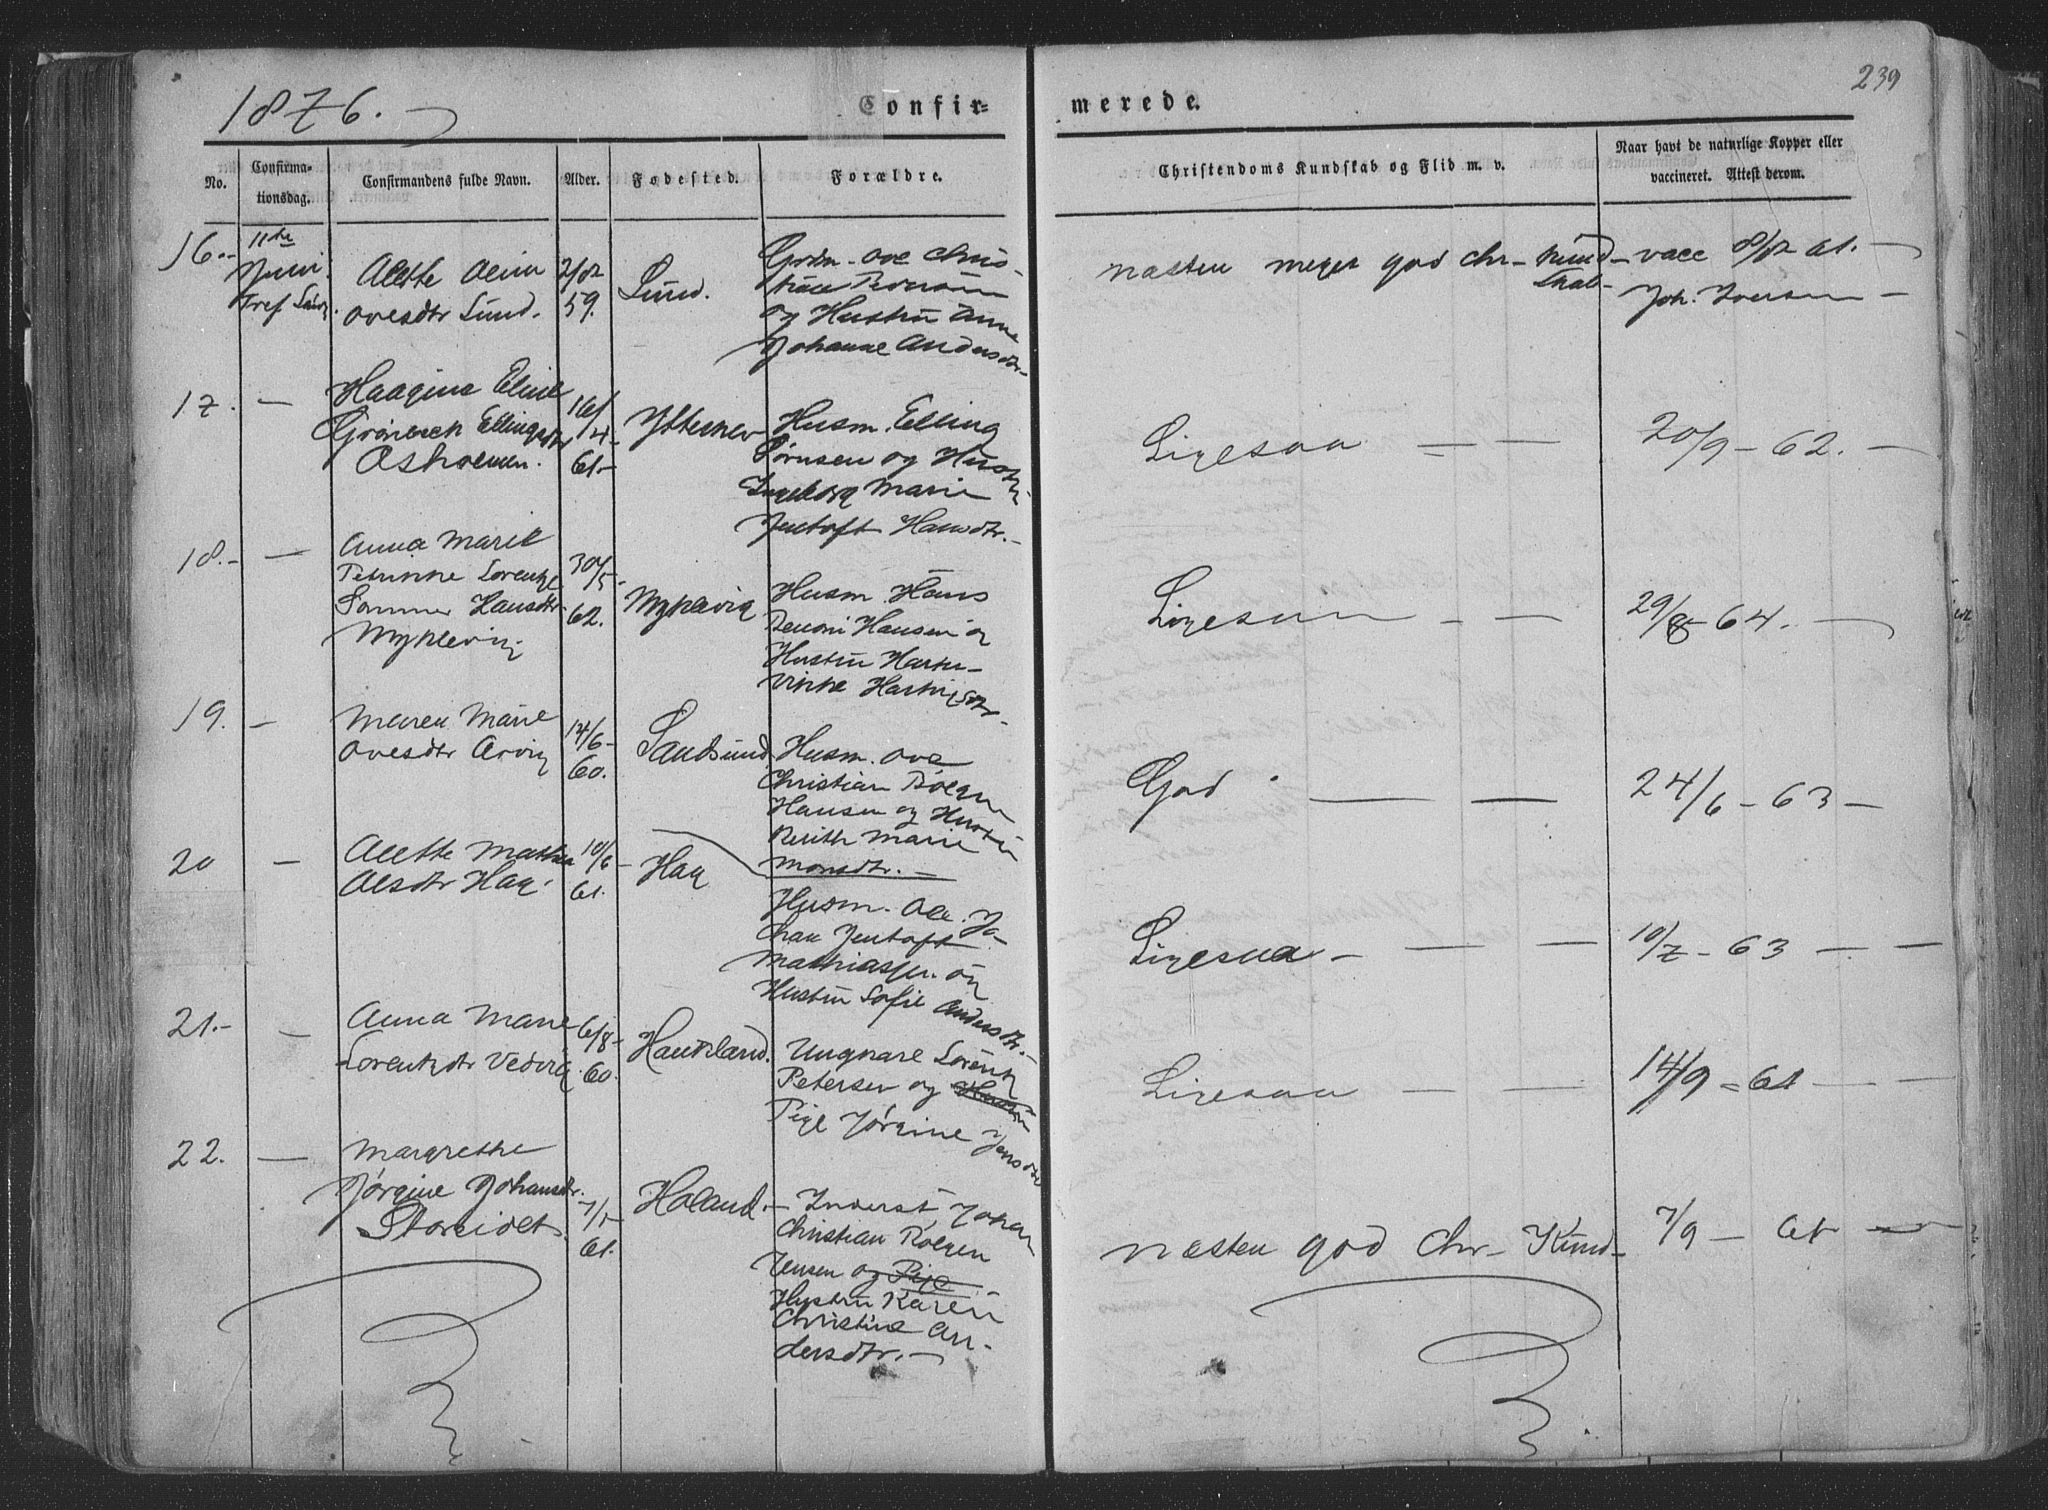 1876.
239
Confir-
merede.
No.
Confirma-
tionsdag.
Confirmandens fulde Navn.
Alder.
Fødested.
Forældre.
Christendoms Kundskab og Flid m. v.
Naar havt de naturlige Kopper eller
vaccineret. Attest derom.
16.
11te
Juni
Tref Sønd.
Alette Oline
Ovesdtr Sund.
59.
Sund.
Ove Chris-
og Hustru Anne
Johanne Andersdtr
Næsten meget god Chr. Kund-
skab
vacc
Joh. Iversen
17.
—
Haagine Eline
Grönbech Ellingsdtr
Asholmen.
16/
4
61
Ytternev
Husm. Elling
Sörnsen og Hustr
Ingeborg Marie
Jentoft Hansdtr.
Ligesaa — —
20/9 - 62. —
18.
—
Anna Marie
Petrikke Lorentze
Sommer Hansdtr
Myklevig
30/5
62.
Myklevig
Husm. Hans
Benoni Hansen og
Hustru Harte-
vikke Hartvigsdtr
Ligesaa — —
29/8 - 64. —
19.
—
Maren Marie
Ovesdtr Arvig
14/6
60.
Sandsund
Husm. Ove
Christian Bölgen
Hansen og Hustru
Berith Marie
Monsdtr. —
God — —
24/6 - 63 —
20
—
Alette Mathea
Olsdtr Hag
10/6
61.
Hag
Husm. Ole Jo-
han Jentoft
Mathiassen og
Hustru Sofie Andersdtr.
Ligesaa — — —
10/7 - 63 — —
21.
—
Anna Marie
Lorentzdtr Vedvig
6/8
60.
Haukland.
Ungkarl Lorentz
Petersen og Hustru
Pige Jørgine Jensdtr
Ligesaa — —
14/9 - 61 — —
22.
—
Margrethe
Jørgine Johansdtr.
Storeidet
7/1
61.
Holand.
Inderst Johan
Christian Rölgen
Jensen og Pige
Hustru Karen
Christine An-
dersdtr. —
Næsten god Chr. Kund-
7/9 - 61